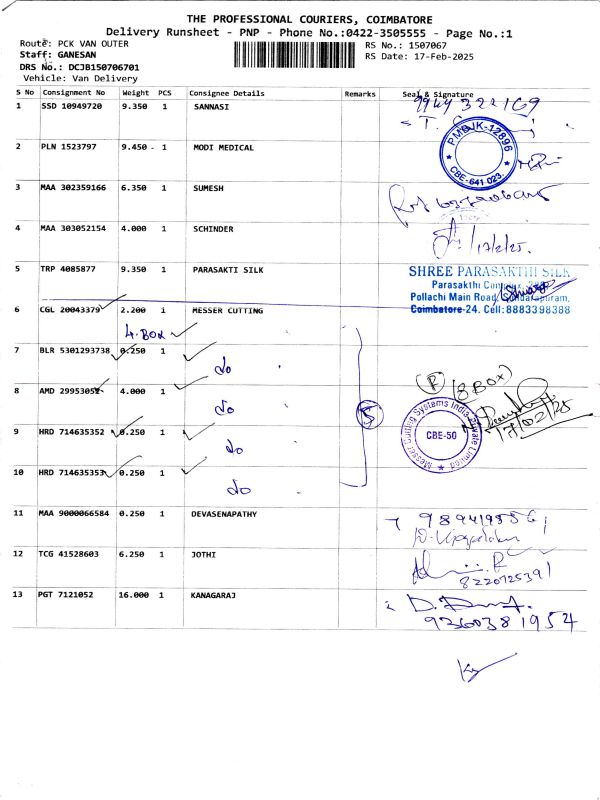 THE PROFESSIONAL COURIERS, COIMBATORE
Delivery Runsheet - PNP - Phone No.:0422-3505555 - Page No.:1
Route: PCK VAN OUTER RS No.: 1507067
Staff: GANESAN RS Date: 17-Feb-2025
DRS No.: DCJB150706701
Vehicle: Van Delivery
S No Consignment No Weight PCS Consignee Details Remarks Seal & Signature
1 SSD 10949720 9.350 1 SANNASI
PMBJK-12896
CBE-641 023.
2 PLN 1523797 9.450 1 MODI MEDICAL
3 MAA 302359166 6.350 1 SUMESH
4 MAA 303052154 4.000 1 SCHINDER
17/2/25.
5 TRP 4085877 9.350 1 PARASAKTI SILK
SHREE PARASAKTHI SILK
Parasakthi
Pollachi Main Road,
Coimbatore-24. Cell: 8883398388
6 CGL 20043379 2.200 1 MESSER CUTTING
4. BOX
7 BLR 5301293738 0.250 1 do
8 AMD 29953052 4.000 1 do
(8 BOX)
17/02/25
5
Messer Cutting Systems India Private Limited
CBE-50
9 HRD 714635352 0.250 1 do
10 HRD 714635353 0.250 1 do
11 MAA 9000066584 0.250 1 DEVASENAPATHY
12 TCG 41528603 6.250 1 JOTHI
8220125391
13 PGT 7121052 16.000 1 KANAGARAJ
9360381954